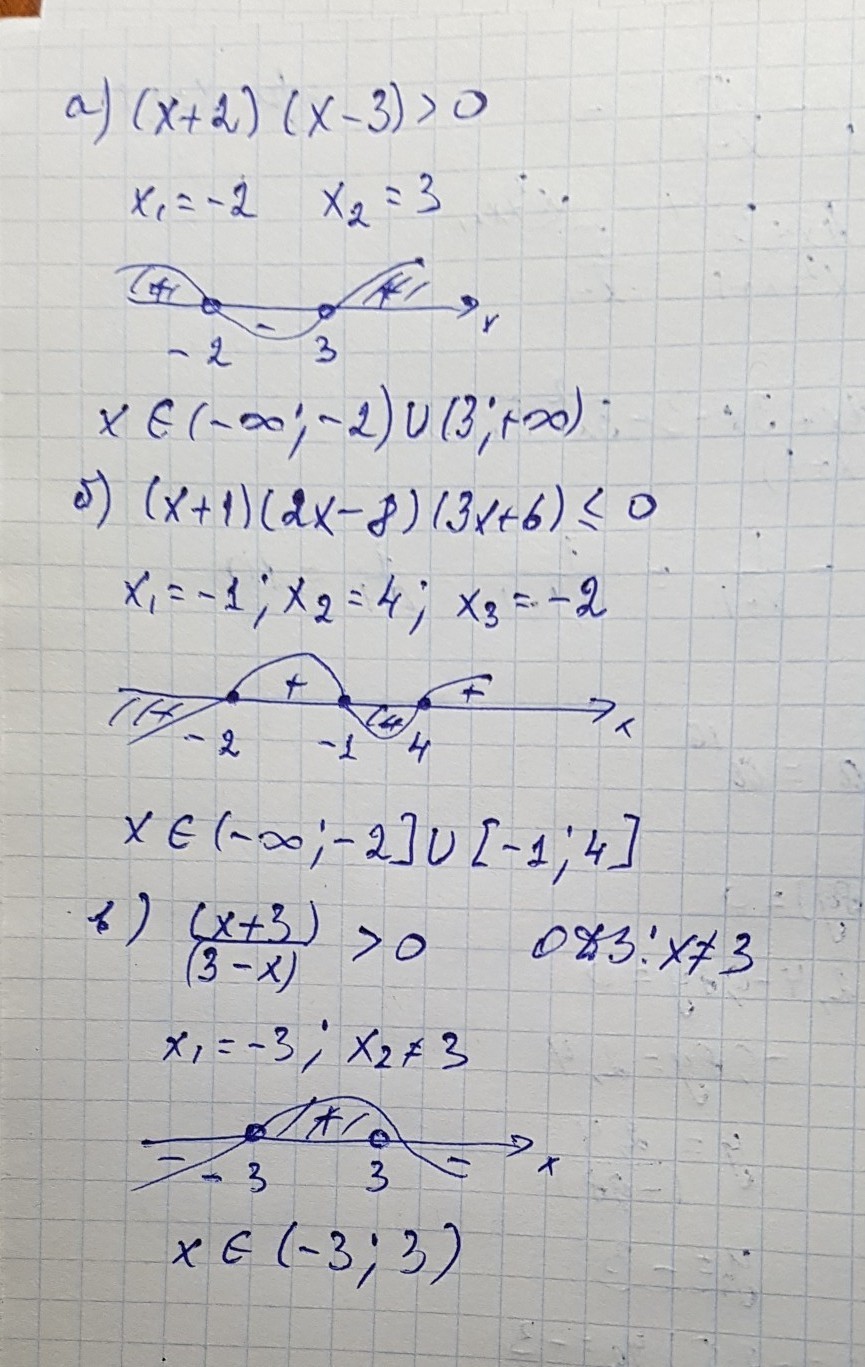 а) (x+2) (x-3)>0
x₁=-2 x₂=3
+ - +
-2 3 x
x∈(-∞;-2)∪(3;+∞)
б) (x+1)(2x-8)(3x+6)≤0
x₁=-1; x₂=4; x₃=-2
+ +
-2 -1 4 x
x∈(-∞;-2]∪[-1;4]
в) (x+3)/(3-x) >0 ОДЗ: x≠3
x₁=-3; x₂≠3
- + -
-3 3 x
x∈(-3;3)